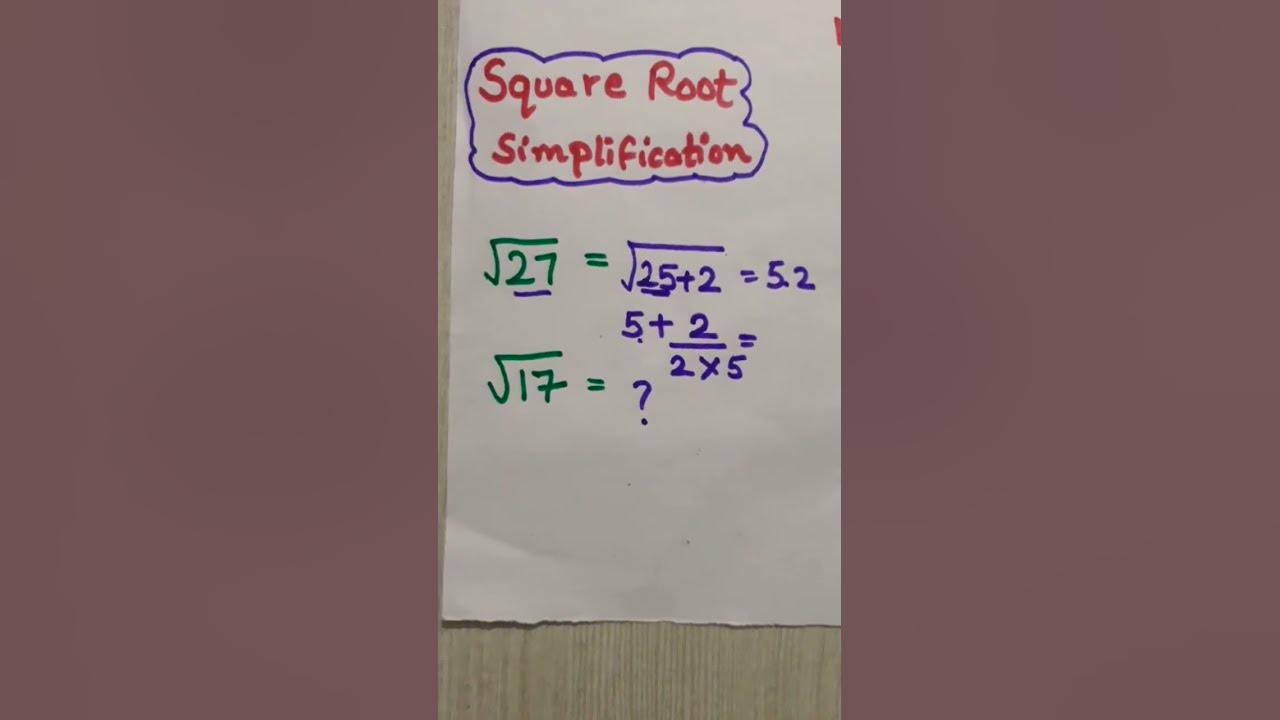 Square Root
Simplification
√27 = √25+2 = 5.2
5 + 2/2×5 =
√17 = ?